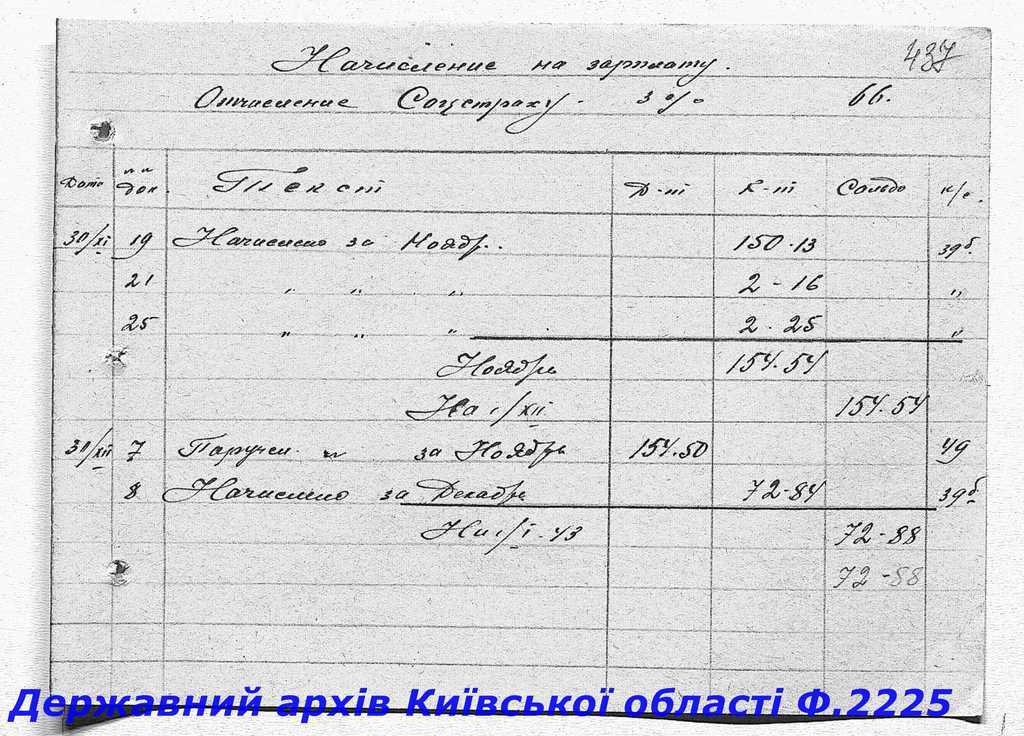 437
Начисление на зарплату.
Отчисление Соцстраху. 3% 66.
Дата №№ док. Текст Д-т К-т Сальдо к/с.
30/XI 19 Начислено за Ноябр.. 150.13 39б.
21 " " " 2-16 "
25 " " " 2.25 "
Ноябрь 154.54
На 1/XII 154.54
30/XII 7 Поручен. за Ноябрь 154.50 49
8 Начислено за Декабрь 72-84 39б
На 1/I-43 72-88
72-88
Державний архів Київської області Ф.2225